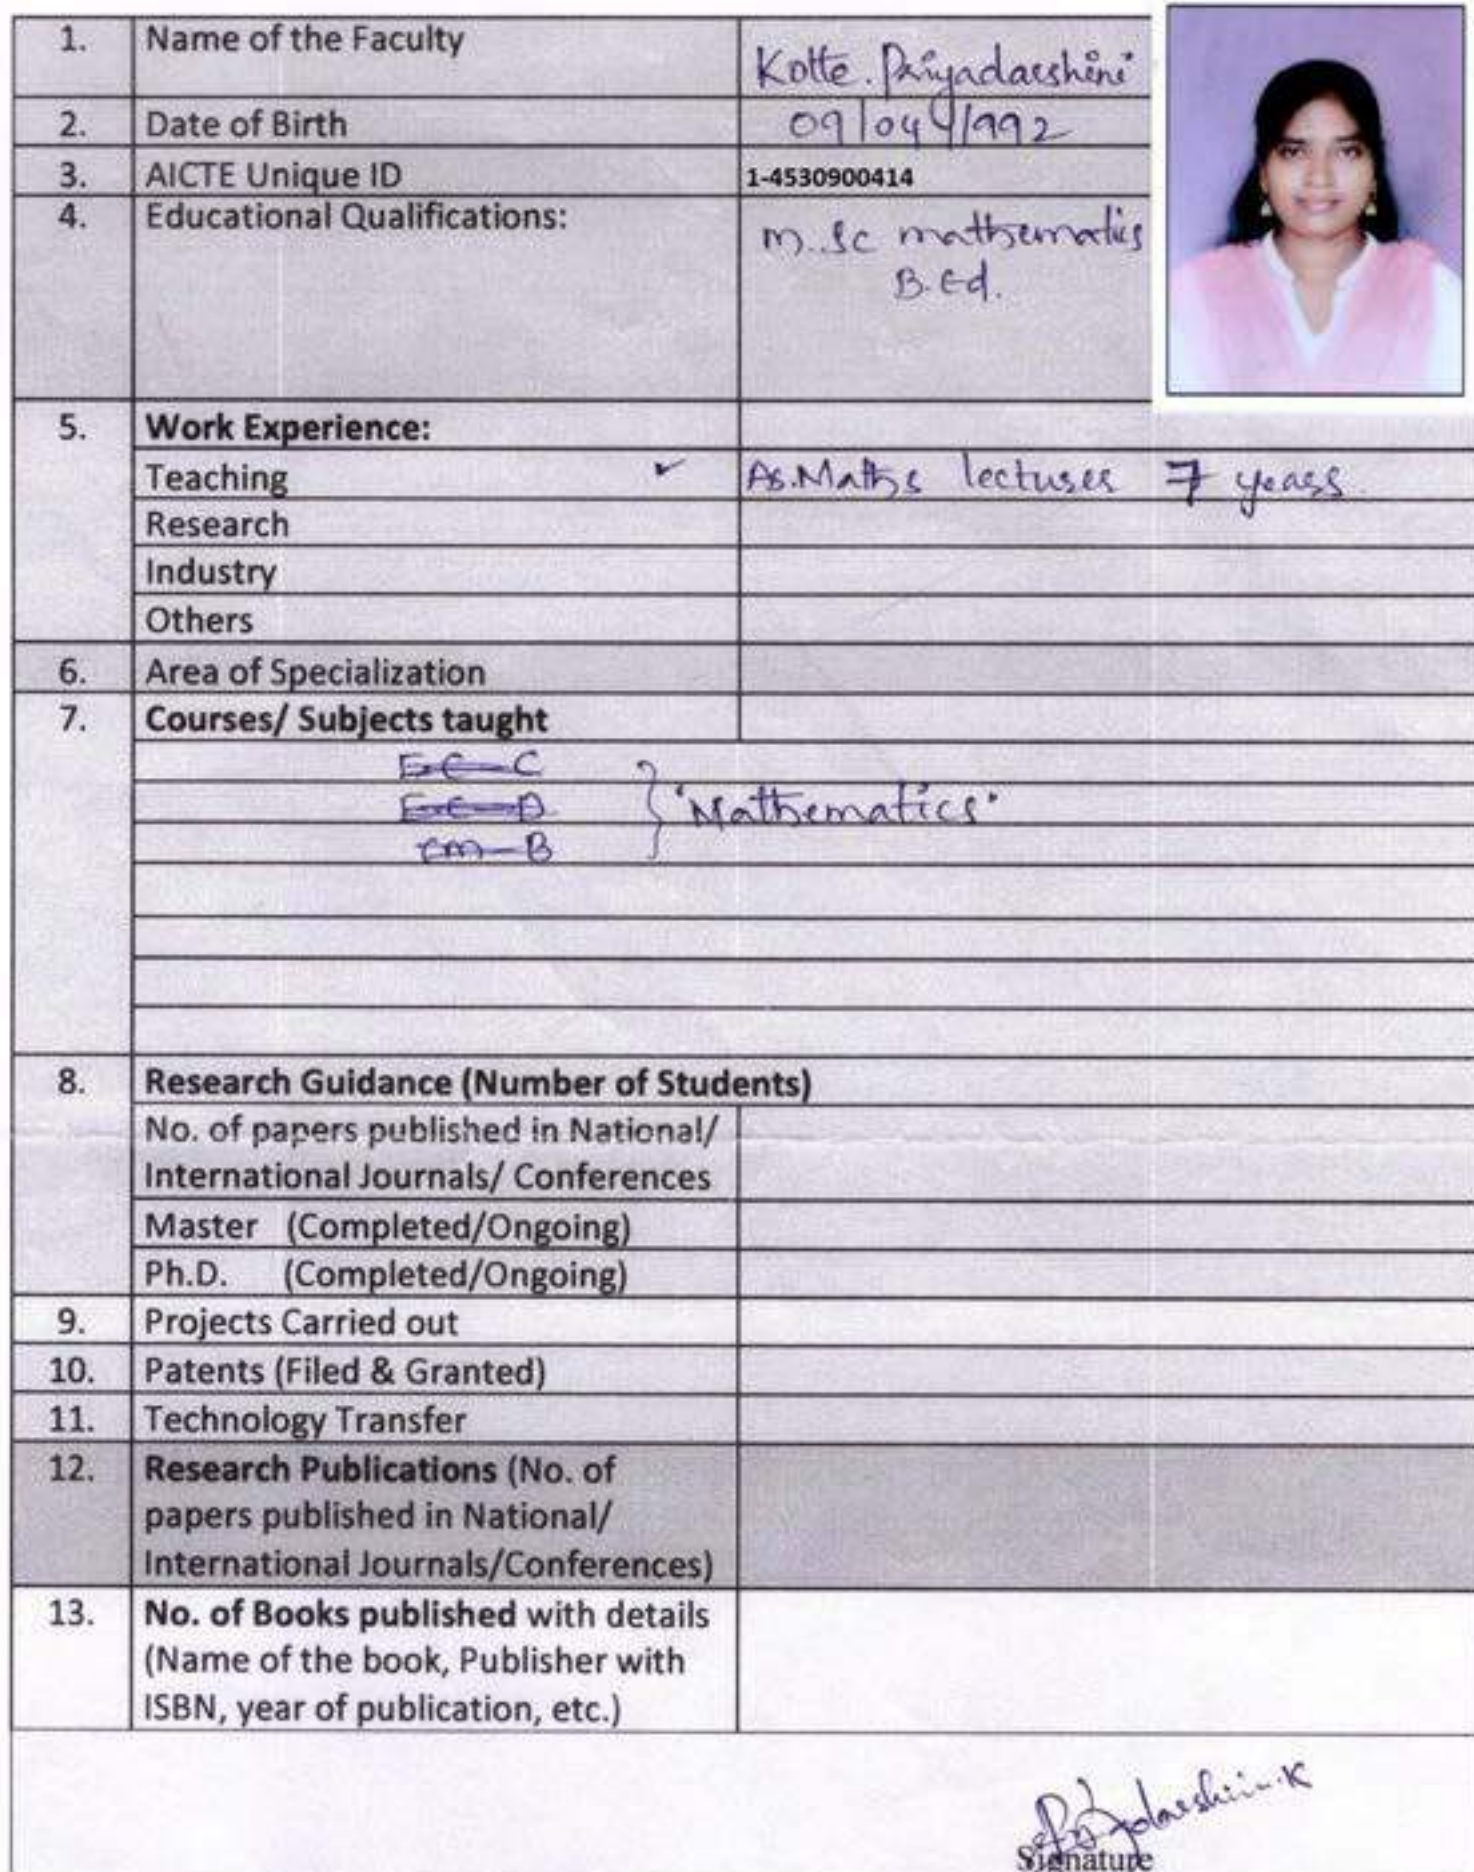 1. Name of the Faculty Kotte. Priyadarshini
2. Date of Birth 09/04/1992
3. AICTE Unique ID 1-4530900414
4. Educational Qualifications: M.Sc mathematics
B.Ed.
5. Work Experience:
Teaching ✓ As.Maths lecturer 7 years.
Research
Industry
Others
6. Area of Specialization
7. Courses/ Subjects taught
EC-C
EC-D } 'Mathematics'
cm-B
8. Research Guidance (Number of Students)
No. of papers published in National/
International Journals/ Conferences
Master (Completed/Ongoing)
Ph.D. (Completed/Ongoing)
9. Projects Carried out
10. Patents (Filed & Granted)
11. Technology Transfer
12. Research Publications (No. of
papers published in National/
International Journals/Conferences)
13. No. of Books published with details
(Name of the book, Publisher with
ISBN, year of publication, etc.)
Priyadarshini.K
Signature